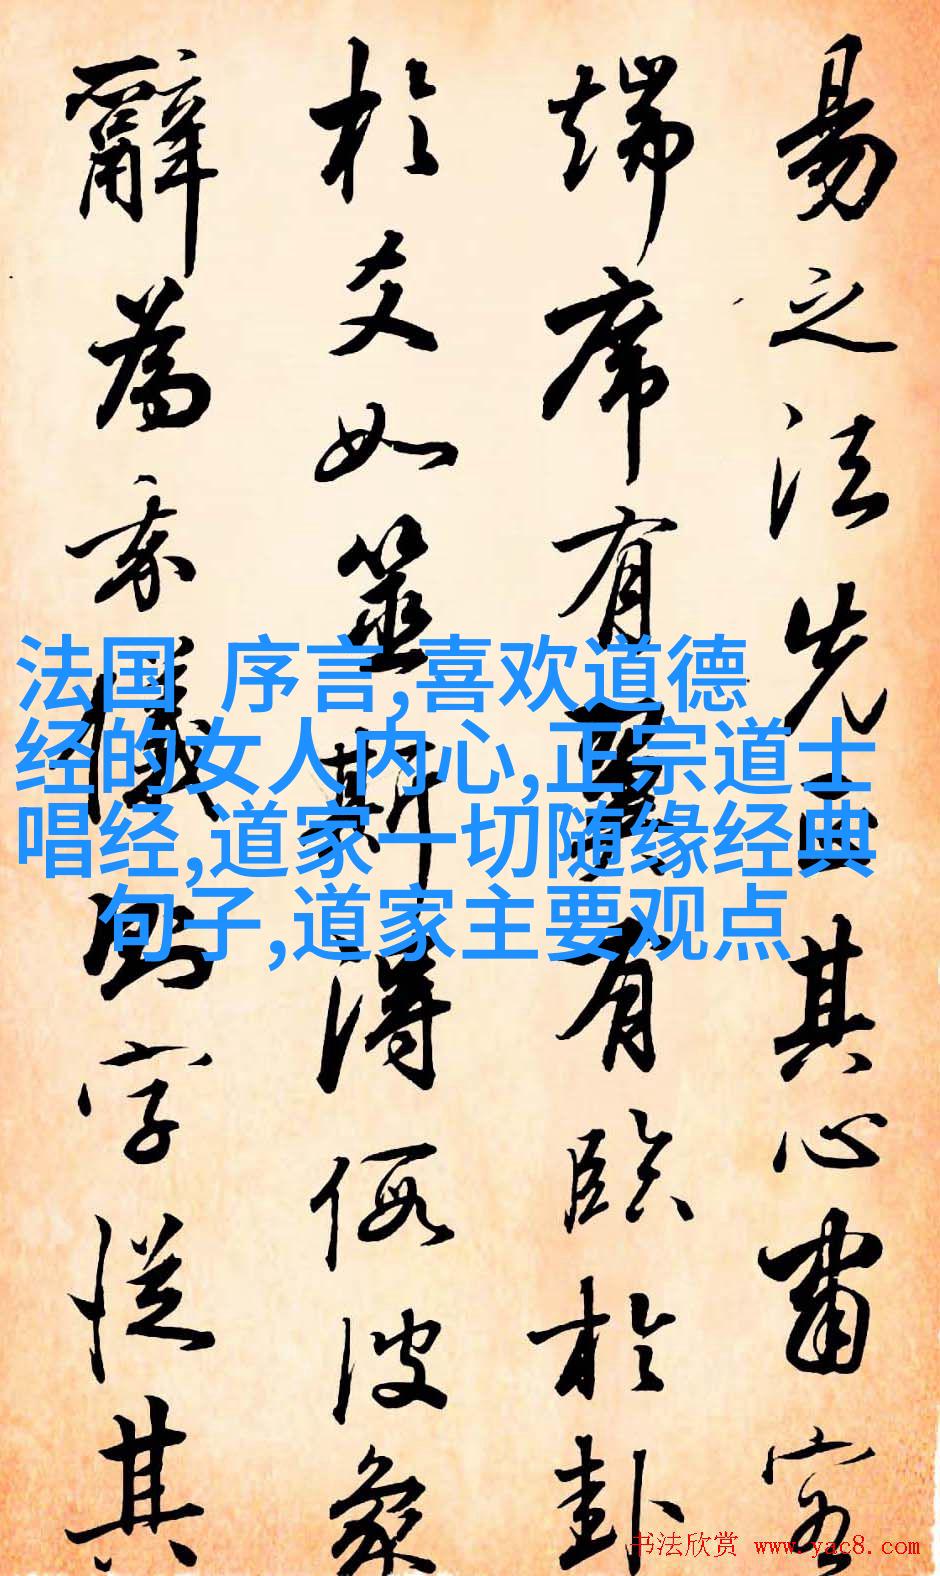 易之法先正其心肅容
端席有翼有臨於卦
於爻如筮斯得假彼象
辭為我儀則字從其
法国 序言,喜欢道德
经的女人内心,正宗道士
唱经,道家一切随缘经典
句子,道家主要观点
书法欣赏 www.yac8.com